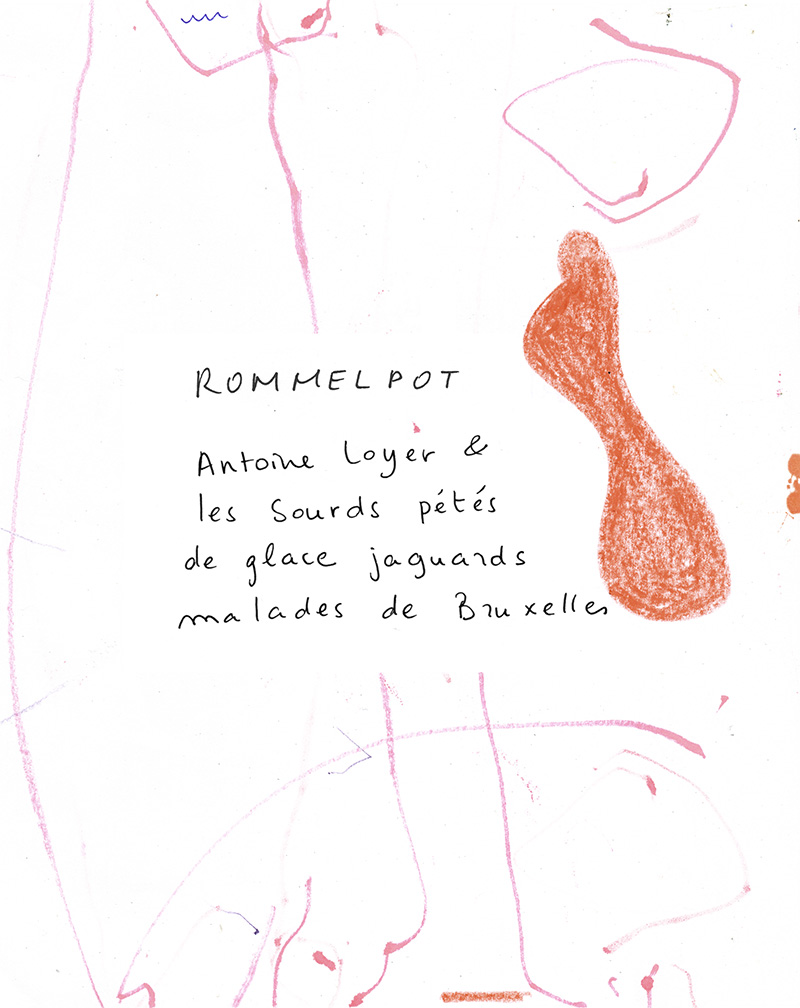 ROMMELPOT
Antoine Loyer &
les Sourds pétés
de glace jaguards
malades de Bruxelles